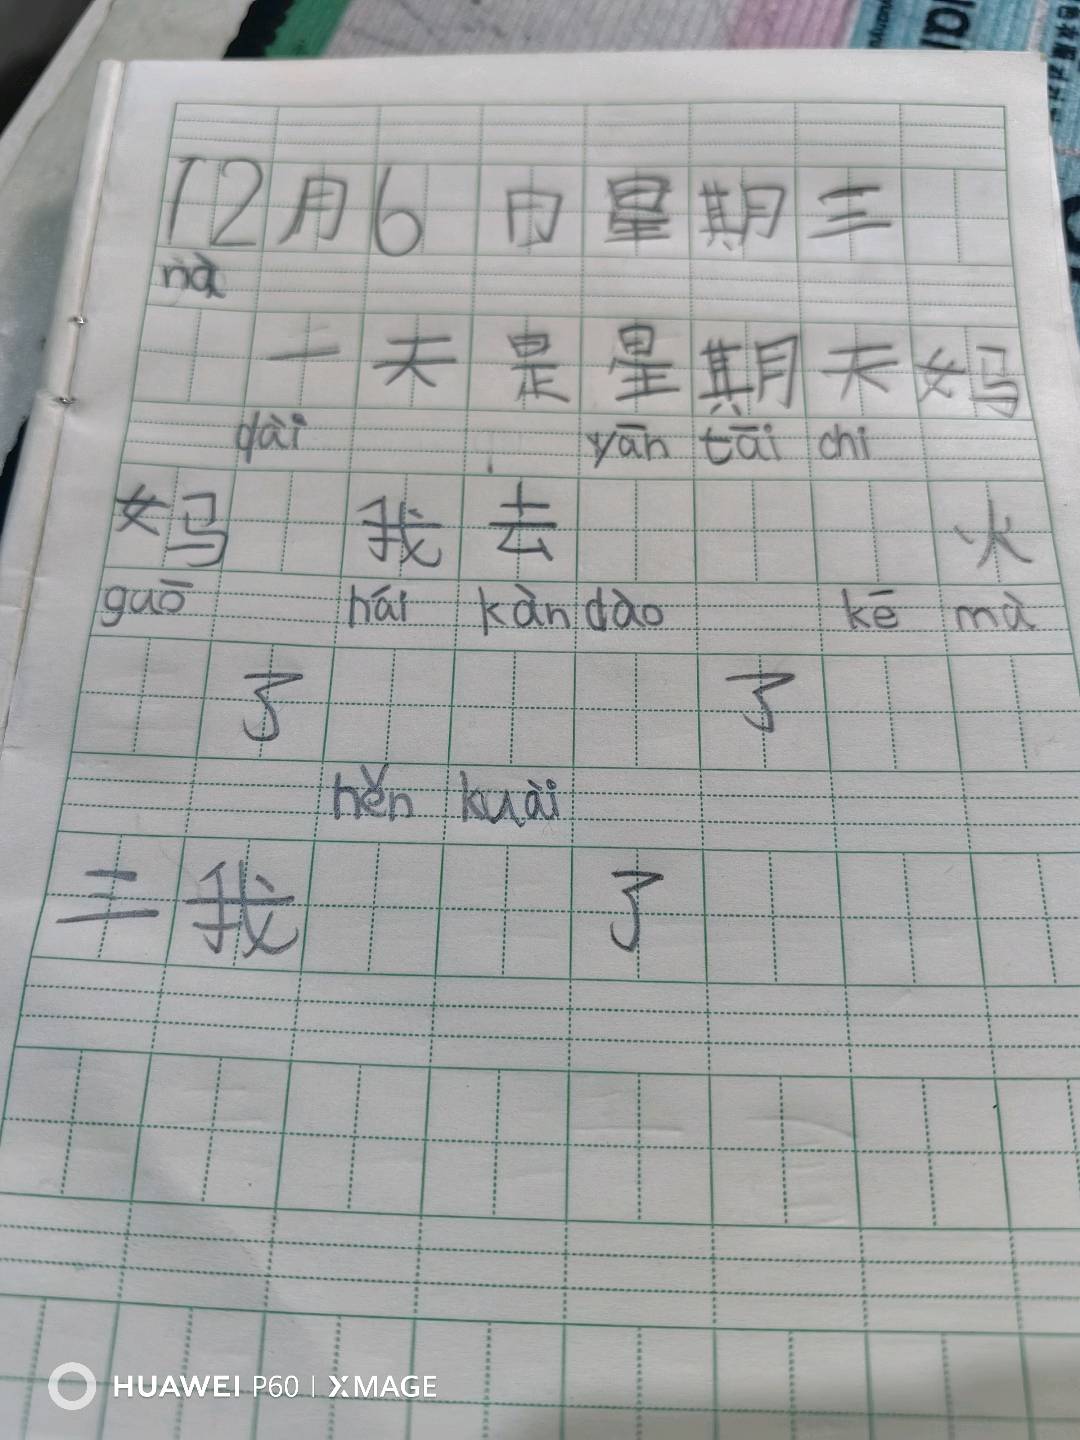 12月6日星期三
nà
一天是星期天妈
dài yān tāi chi
妈 我去 火
guō hái kàn dào kē mà
了 了
hěn kuài
三我 了
HUAWEI P60 | XMAGE